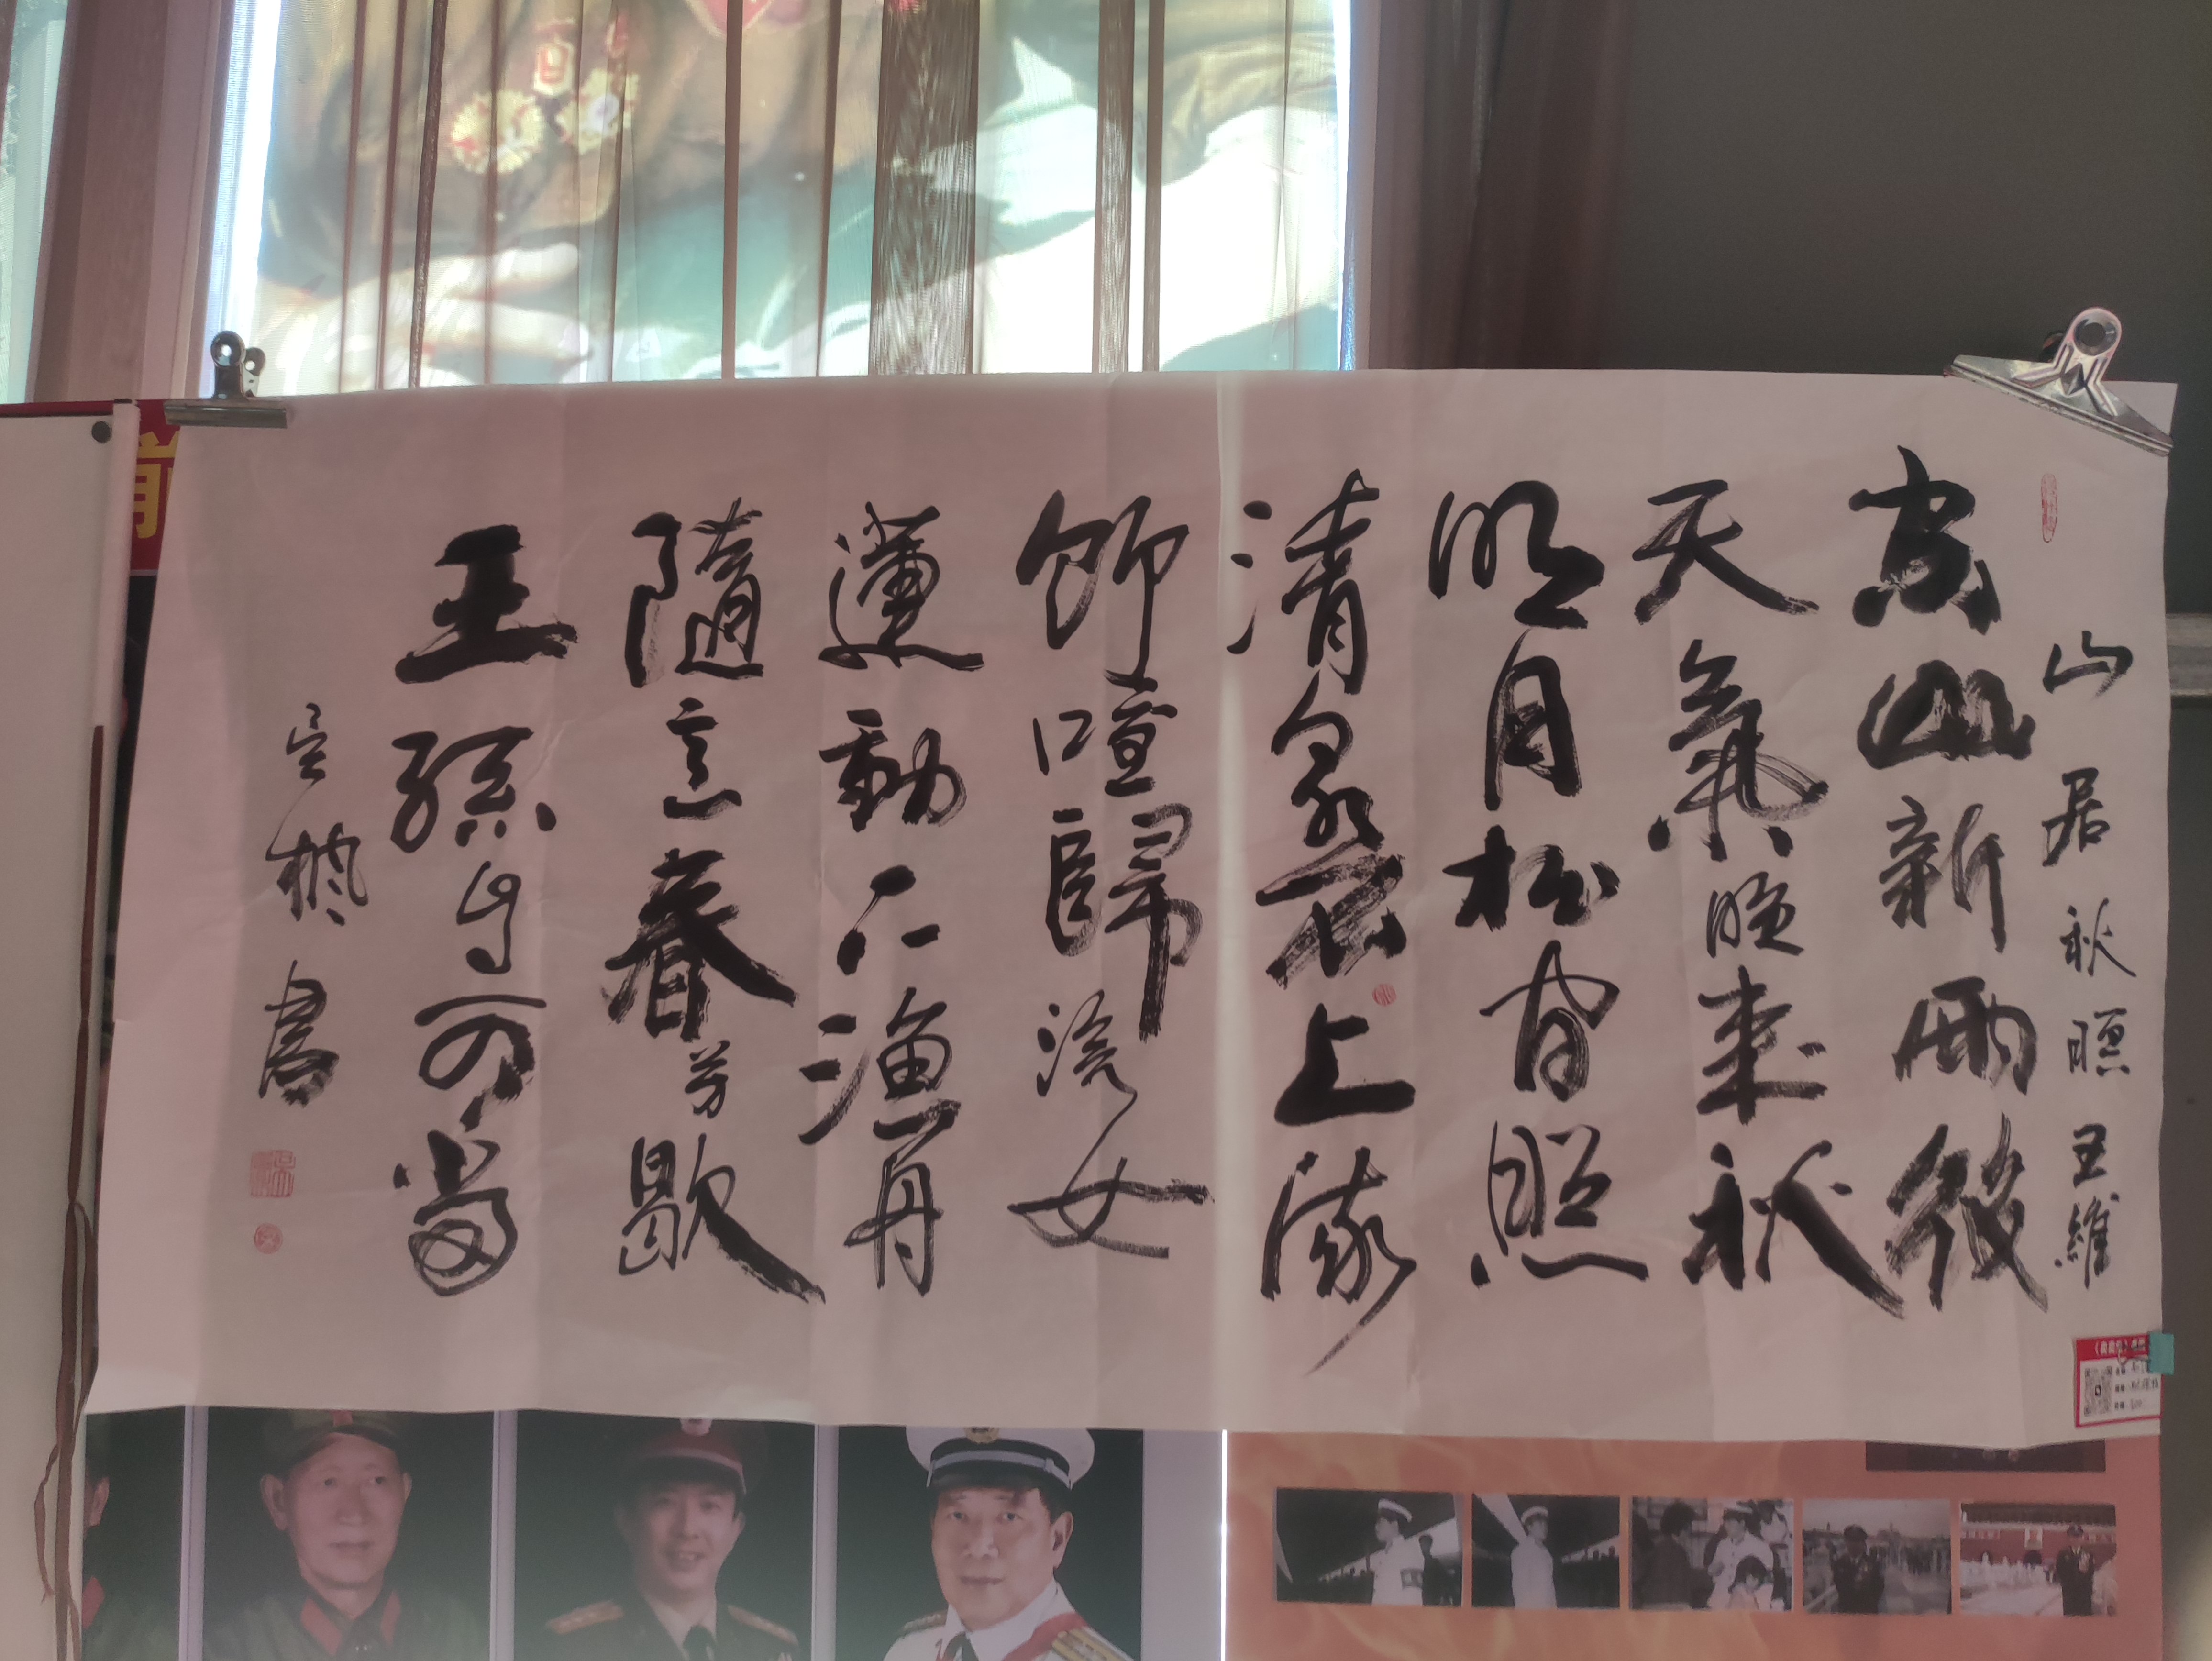 山居秋暝 王維
空山新雨後
天氣晚来秋
明月松间照
清泉石上流
竹喧歸浣女
蓮動下漁舟
隨意春芳歇
王孫自可留
書